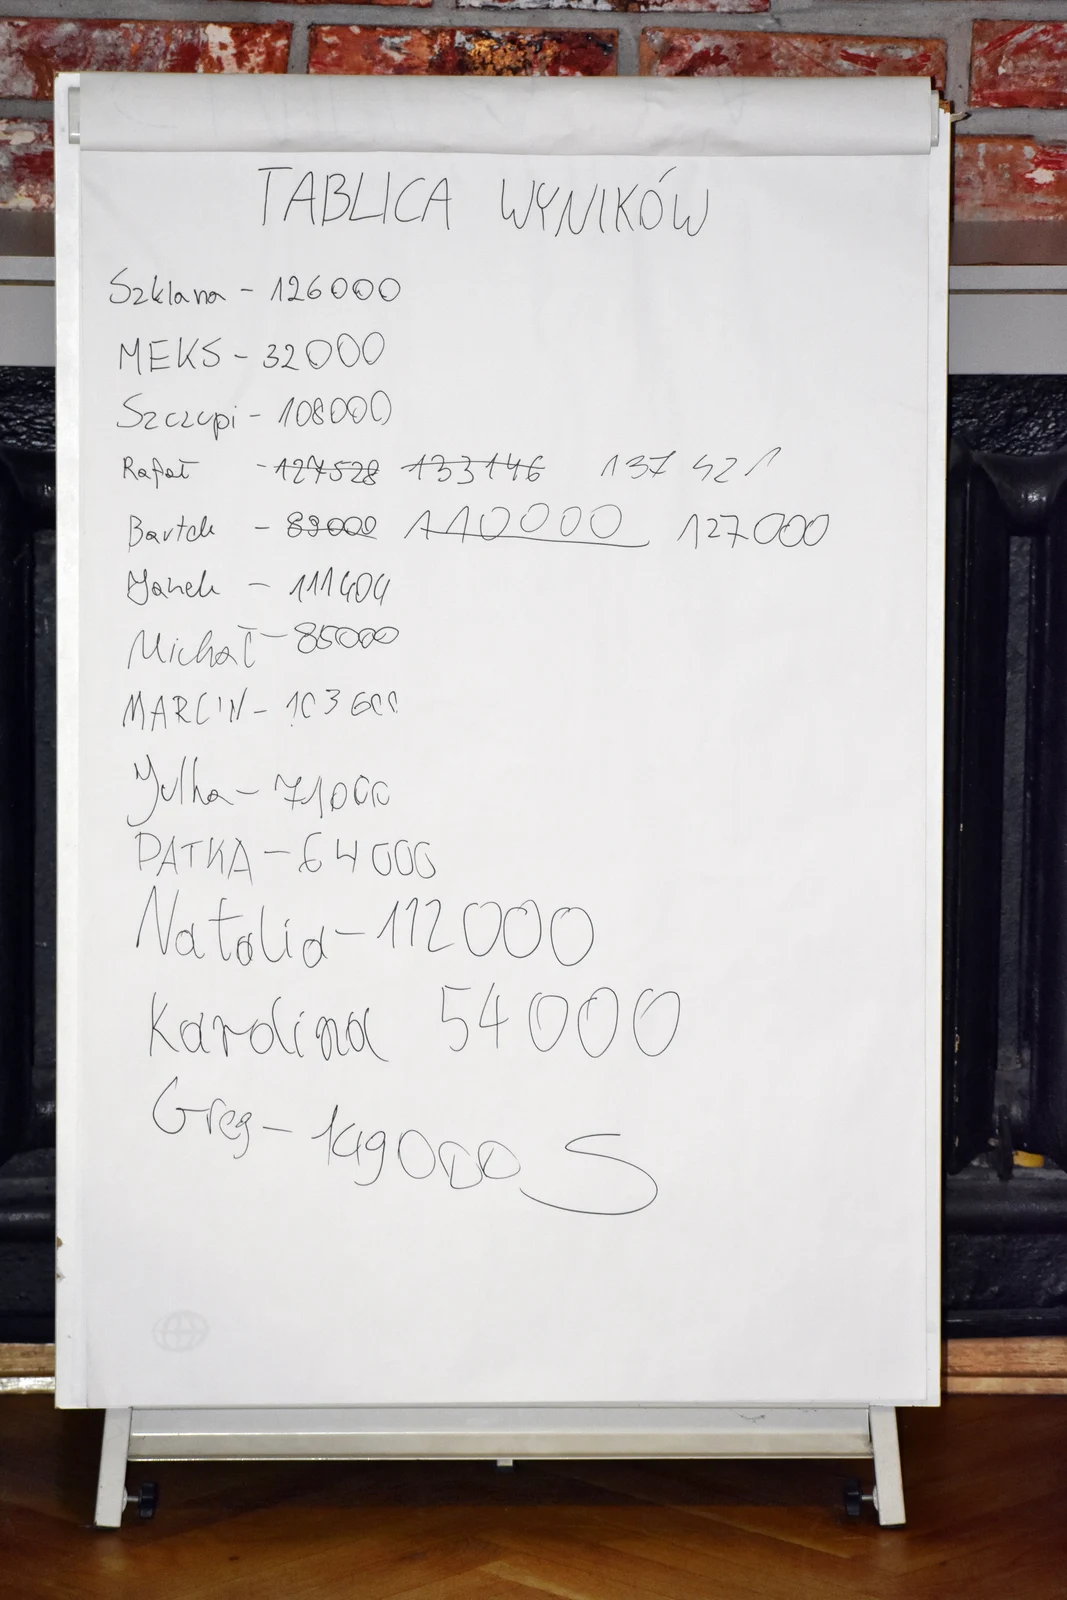 TABLICA WYNIKÓW
Szklana - 126000
MEKS - 32000
Szczupi - 108000
Rafał - 127528 133146 137 421
Bartek - 89000 110000 127000
Janek - 111404
Michał - 85000
MARCIN - 103600
Julka - 71000
PATKA - 64000
Natalia - 112000
Karolina 54000
Greg - 149000